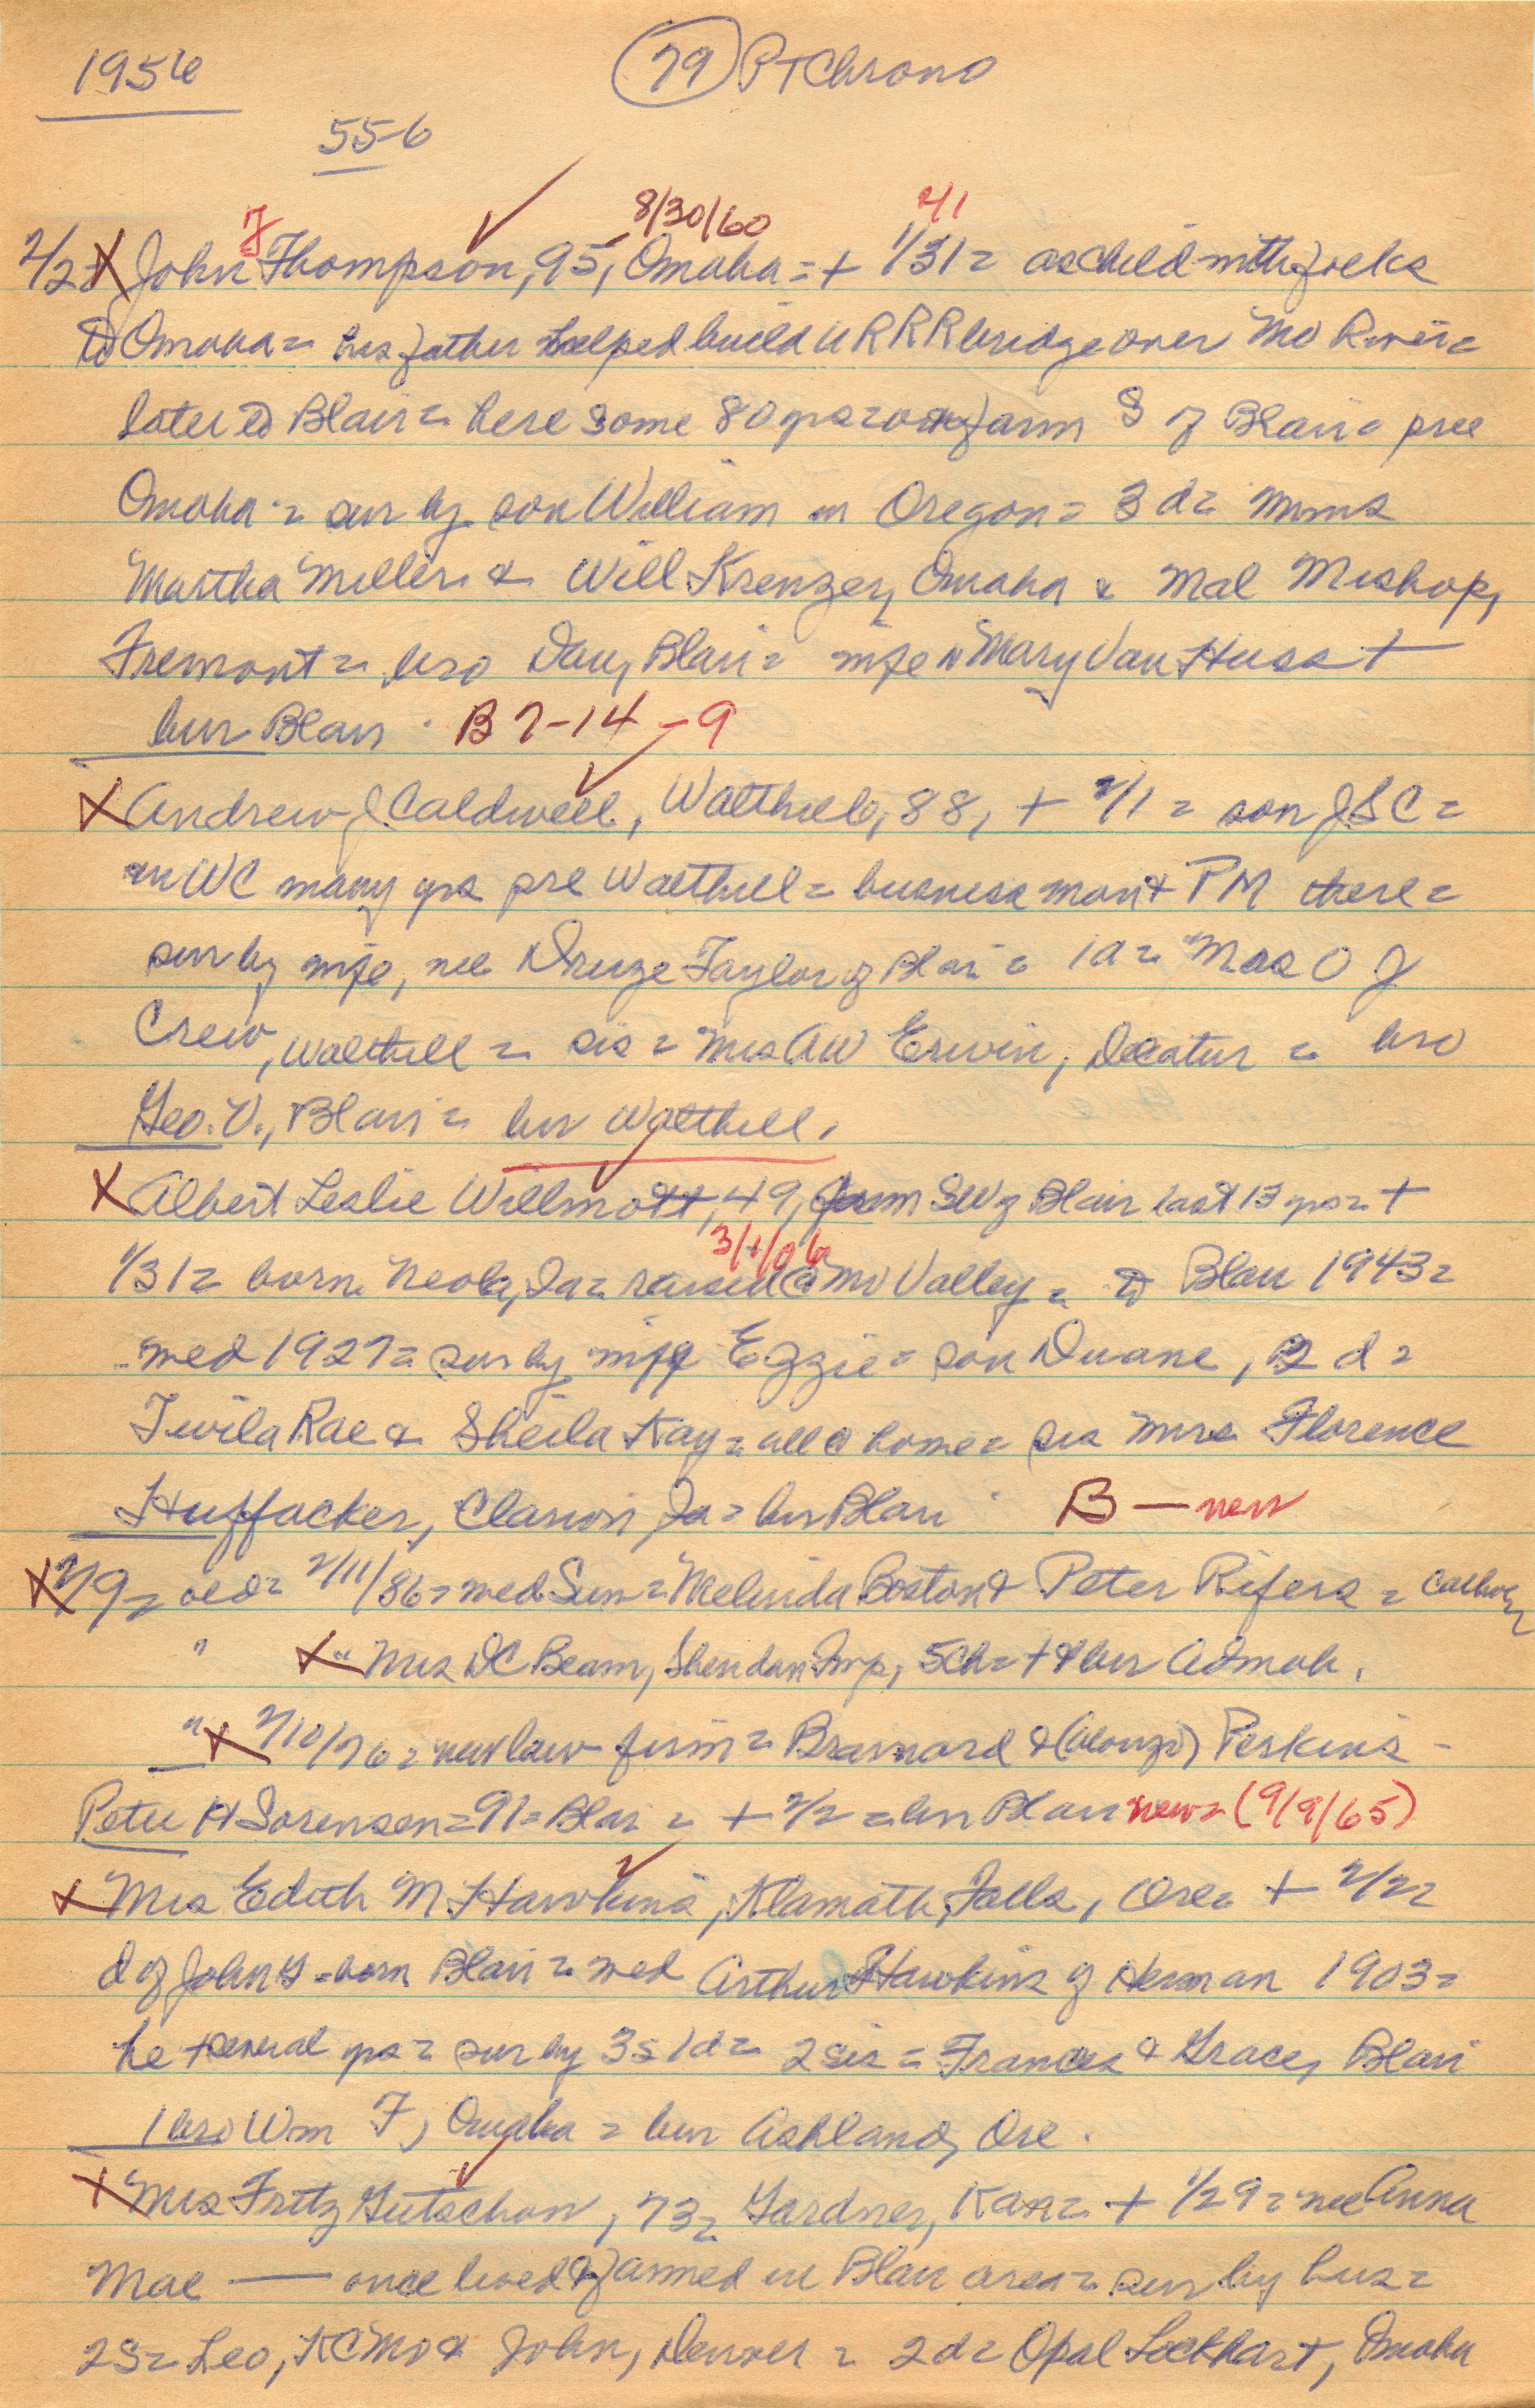 1956
79 PTChrono
556
8/30/60
2/1
J
2/2= X John Thompson, 95, Omaha = + 1/31 = as child with folks
to Omaha = his father helped build URRR bridge over Mo River =
later to Blair = here some 80 yrs = farm S of Blair = pre
Omaha = sur by son William in Oregon = 3 d = Mmes
Martha Miller & Will Krenzer, Omaha & Mal Mishop,
Fremont = bro Dan, Blair = wife N Mary Van Huss +
bur Blair B 7-14-9
X Andrew J Caldwell, Walthill, 88, + 2/1 = son JSC =
in WC many yrs pre Walthill = business man & PM there =
sur by wife, nee Taylor of Blair = 1d = Mrs O J
Crew, Walthill = sis = Mrs AW Erwin, Decatur = bro
Geo. V., Blair = bur Walthill.
X Albert Leslie Willmott, 49, farm SW of Blair last 13 yrs = +
3/1/06
1/31 = born Neola, Ia = raised @ Mo Valley = to Blair 1943 =
wed 1927 = sur by wife = son Duane, 2 d =
Twila Rae & Sheila Kay = all @ home = sis Mrs Florence
Huffacker, Clarion, Ia = bur Blair B — new
X 2/9 = old = 2/11/86 = wed Sun = Melinda Boston & Peter Rifers = Calhoun
" X " Mrs DC Beam, Sheridan Twp, 5ch = + & bur Admah.
" X 2/10/76 = new law firm = Brainard & (Alonzo) Perkins -
Peter H Sorensen = 91 = Blair = + 2/2 = bur Blair new = (9/9/65)
X Mrs Edith M Hawkins, Klamath Falls, Ore = + 2/2 =
d of John = born Blair = wed Arthur Hawkins of Herman 1903 =
he + several yrs = sur by 3s 1d = 2 sis = Frances & Grace, Blair
1 bro Wm F, Omaha = bur Ashland, Ore.
X Mrs Fritz Gutschow, 73, Gardner, Kan = + 1/29 = nee Anna
Mae — once lived & farmed in Blair area = sur by hus =
2S = Leo, KCMo & John, Denver = 2d = Opal Lockhart, Omaha